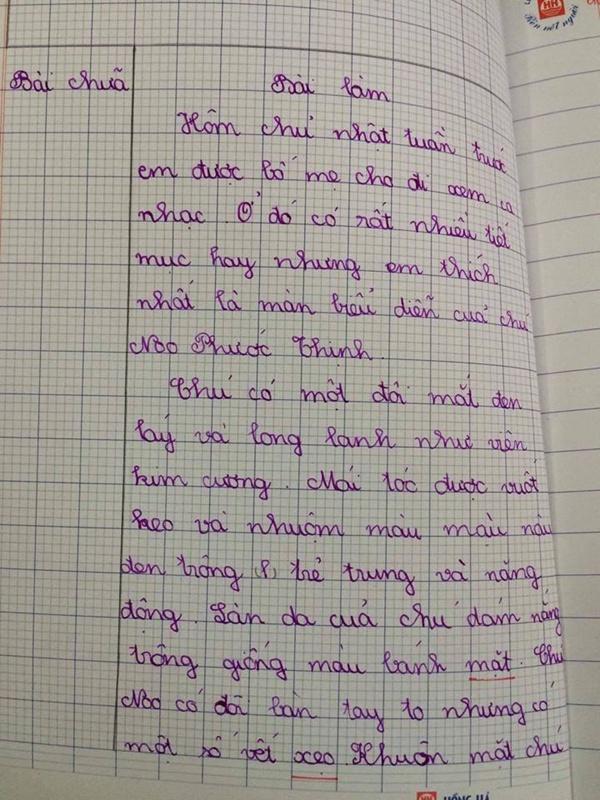 HH
Bài chữa
Bài làm
Hôm chủ nhật tuần trước
em được bố mẹ cho đi xem ca
nhạc. Ở đó có rất nhiều tiết
mục hay nhưng em thích
nhất là màn biểu diễn cuả chú
Noo Phước Thịnh.
Chú có một đôi mắt đen
láy và long lanh như viên
kim cương. Mái tóc được vuốt
keo và nhuộm màu màu nâu
đen trông trẻ trung và năng
động. Làn da cuả chú dám nắng
trông giống màu bánh mặt. Chú
Noo có đôi bàn tay to nhưng có
một số vết xẹo. Khuôn mặt chú
HỒNG HÀ